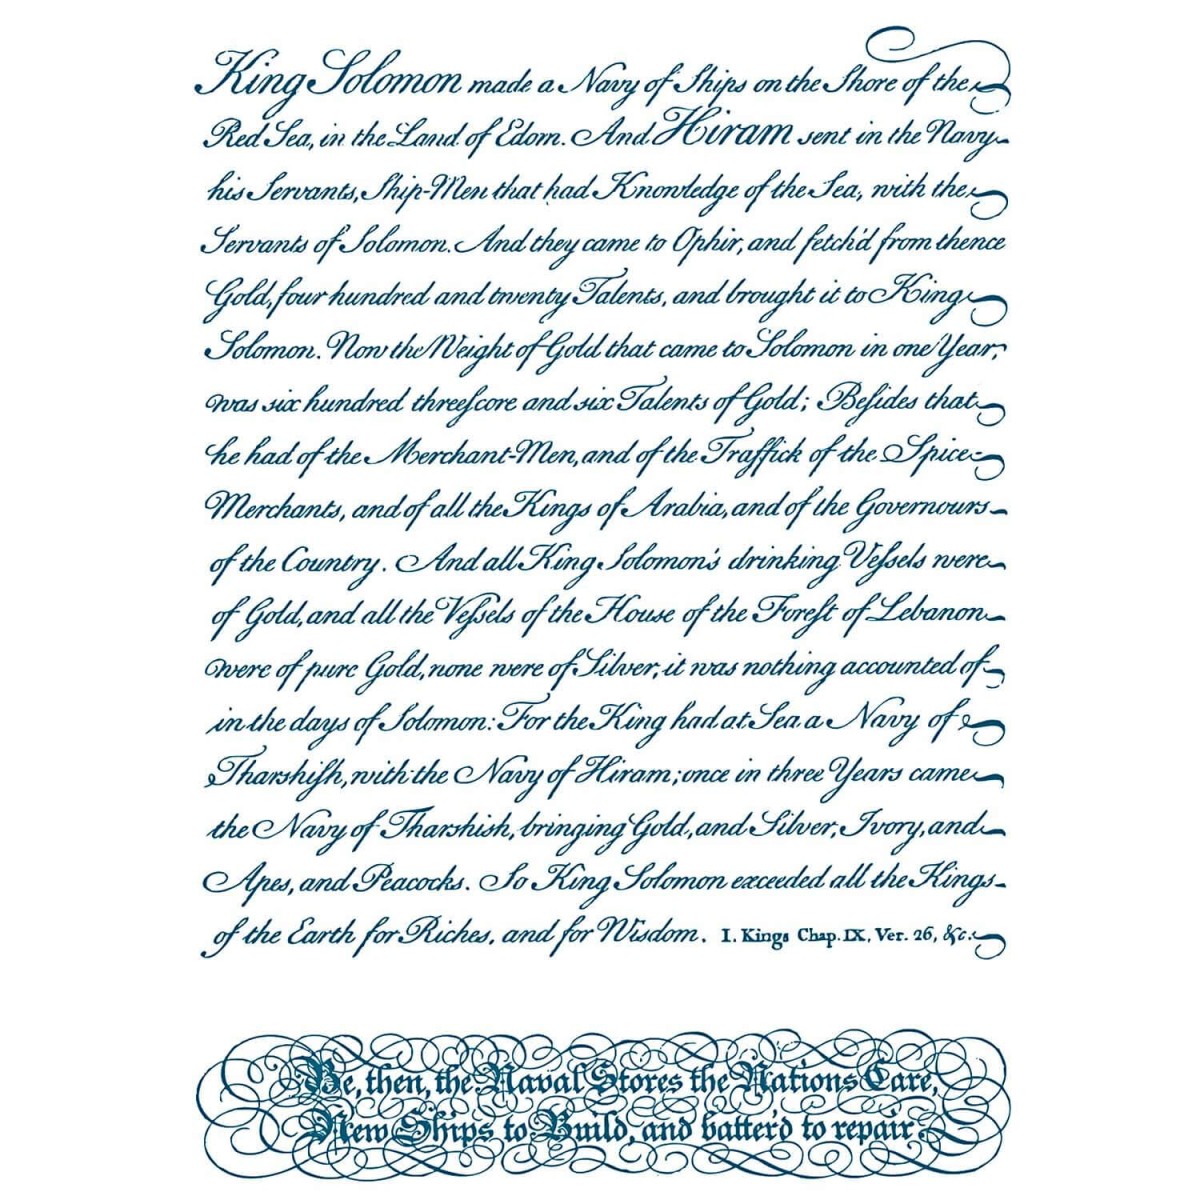 King Solomon made a Navy of Ships on the Shore of the
Red Sea, in the Land of Edom. And Hiram sent in the Navy
his Servants, Ship-Men that had Knowledge of the Sea, with the
Servants of Solomon. And they came to Ophir, and fetch'd from thence
Gold, four hundred and twenty Talents, and brought it to King
Solomon. Now the Weight of Gold that came to Solomon in one Year,
was six hundred threeſcore and six Talents of Gold; Beſides that
he had of the Merchant-Men, and of the Traffick of the Spice
Merchants, and of all the Kings of Arabia, and of the Governours
of the Country. And all King Solomon's drinking Veſsels were
of Gold, and all the Veſsels of the House of the Foreſt of Lebanon
were of pure Gold, none were of Silver, it was nothing accounted of
in the days of Solomon: For the King had at Sea a Navy of
Tharshiſh, with the Navy of Hiram; once in three Years came
the Navy of Tharshish, bringing Gold, and Silver, Ivory, and
Apes, and Peacocks. So King Solomon exceeded all the Kings
of the Earth for Riches, and for Wisdom. I. Kings Chap. IX, Ver. 26, &c.
Be, then, the Naval Stores the Nations Care,
New Ships to Build, and batter'd to repair.